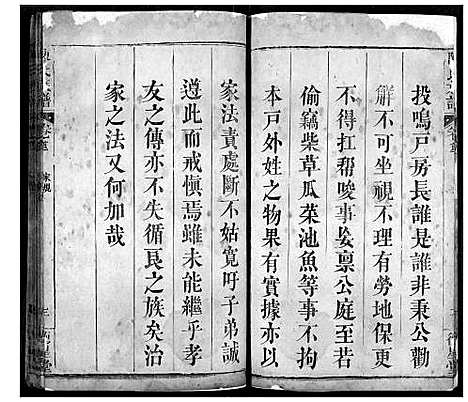 投鳴戶房長誰是誰非秉公勸
觧不可坐視不理有勞地保更
不得扛幫唆事妄禀公庭至若
偷竊柴草瓜菜池魚等事不拘
本戶外姓之物果有實據亦以
家法責處斷不姑寬吁子弟誠
遵此而戒慎焉雖未能繼乎孝
友之傳亦不失循良之族矣治
家之法又何加哉
家規